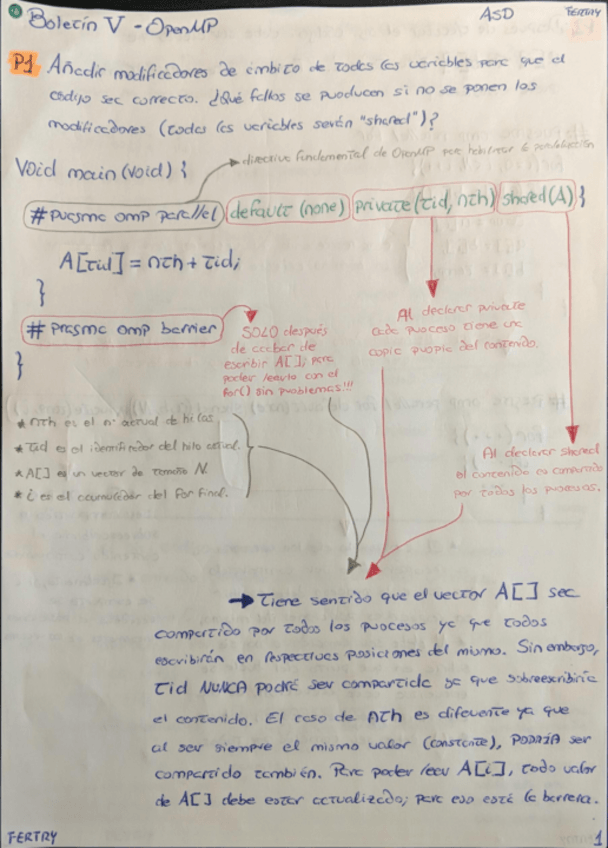 Boletín V - OpenMP
ASD
FERTRY
P1 Añadir modificadores de ámbito de todas las variables para que el
código sea correcto. ¿Qué fallos se producen si no se ponen los
modificadores (todas las variables serán "shared")?
void main(void) {
directiva fundamental de OpenMP para habilitar la paralelización
#pragma omp parallel default (none) private(tid, nth) shared(A) {
A[tid] = nth + tid;
}
#pragma omp barrier
}
SOLO después
de acabar de
escribir A[], para
poder leerlo con el
for() sin problemas!!!
Al declarar private
cada proceso tiene una
copia propia del contenido.
* nth es el nº actual de hilos.
* tid es el identificador del hilo actual.
* A[] es un vector de tamaño N.
* i es el acumulador del for final.
Al declarar shared
el contenido es compartido
por todos los procesos.
→ Tiene sentido que el vector A[] sea
compartido por todos los procesos ya que todos
escribirán en respectivas posiciones del mismo. Sin embargo,
tid NUNCA podrá ser compartida ya que sobreescribiría
el contenido. El caso de nth es diferente ya que
al ser siempre el mismo valor (constante), PODRÍA ser
compartido también. Para poder leer A[i], todo valor
de A[] debe estar actualizado; para eso está la barrera.
FERTRY
1